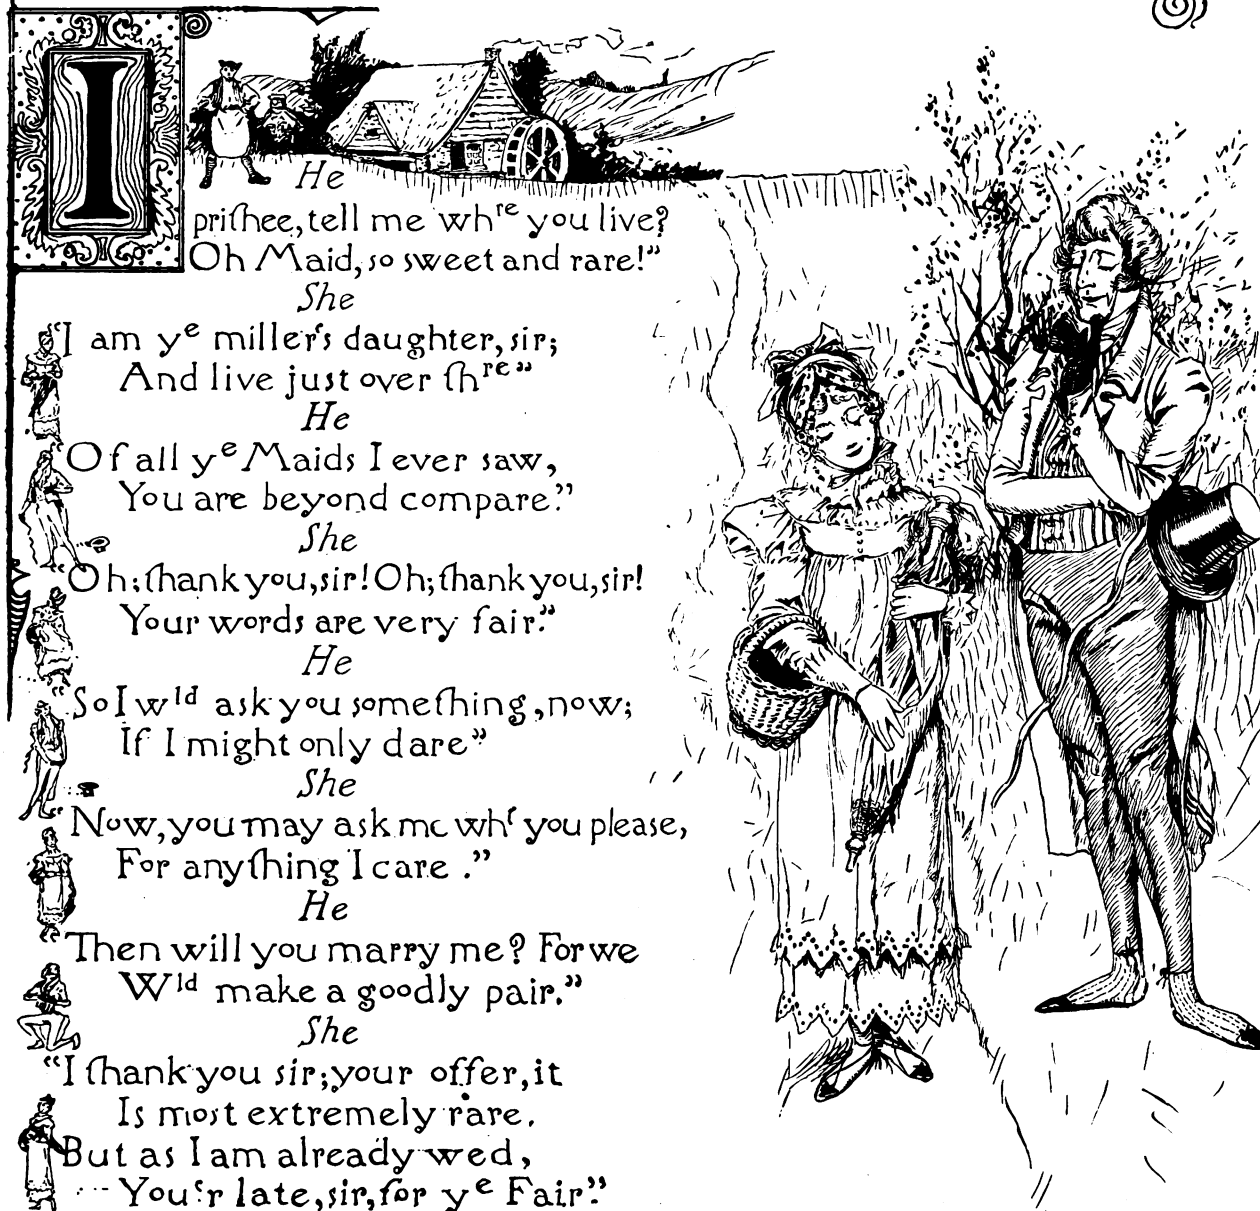 He
I prithee, tell me whre you live?
Oh Maid, so sweet and rare!"
She
"I am ye miller's daughter, sir;
And live just over thre"
He
Of all ye Maids I ever saw,
You are beyond compare."
She
"Oh; thank you, sir! Oh; thank you, sir!
Your words are very fair."
He
"So I wld ask you something, now;
If I might only dare"
She
"Now, you may ask me whr you please,
For anything I care."
He
"Then will you marry me? For we
Wld make a goodly pair."
She
"I thank you sir; your offer, it
Is most extremely rare.
But as I am already wed,
You'r late, sir, for ye Fair."